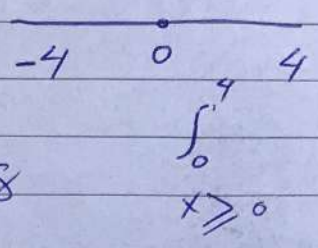 -4 0 4
∫₀⁴
x ⩾ 0